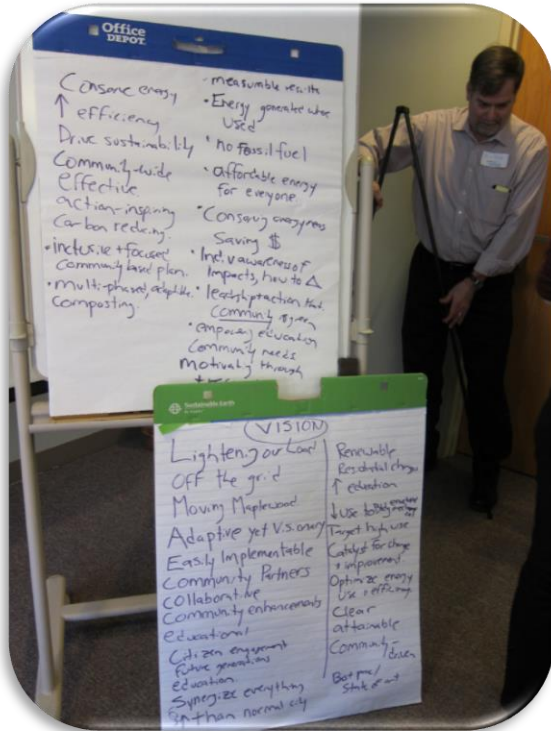 Office
DEPOT
Conserve energy
↑ efficiency
Drive sustainability
Community-wide
effective
action-inspiring
Carbon reducing
• inclusive + focused
Community based plan.
• multi-phased, adaptable
Composting
• measurable results
• Energy generated where
used
• no fossil fuel
• affordable energy
for everyone
Saving $
• Indiv awareness of
Impacts, how to Δ
Community
• empowering education
Community needs
motivating through
Sustainable Earth
VISION
Lightening our Load
OFF the grid
Moving Maplewood
Adaptive yet Visionary
Easily Implementable
Community Partners
Collaborative
Community enhancements
educational
Citizen engagement
future generations
education
Synergize everything
than normal city
Renewable
Residential change
↑ education
↓ use
Target high use
Catalyst for change
+ improvement
Optimize energy
use + efficiency
Clear
attainable
Community-
driven
State of art